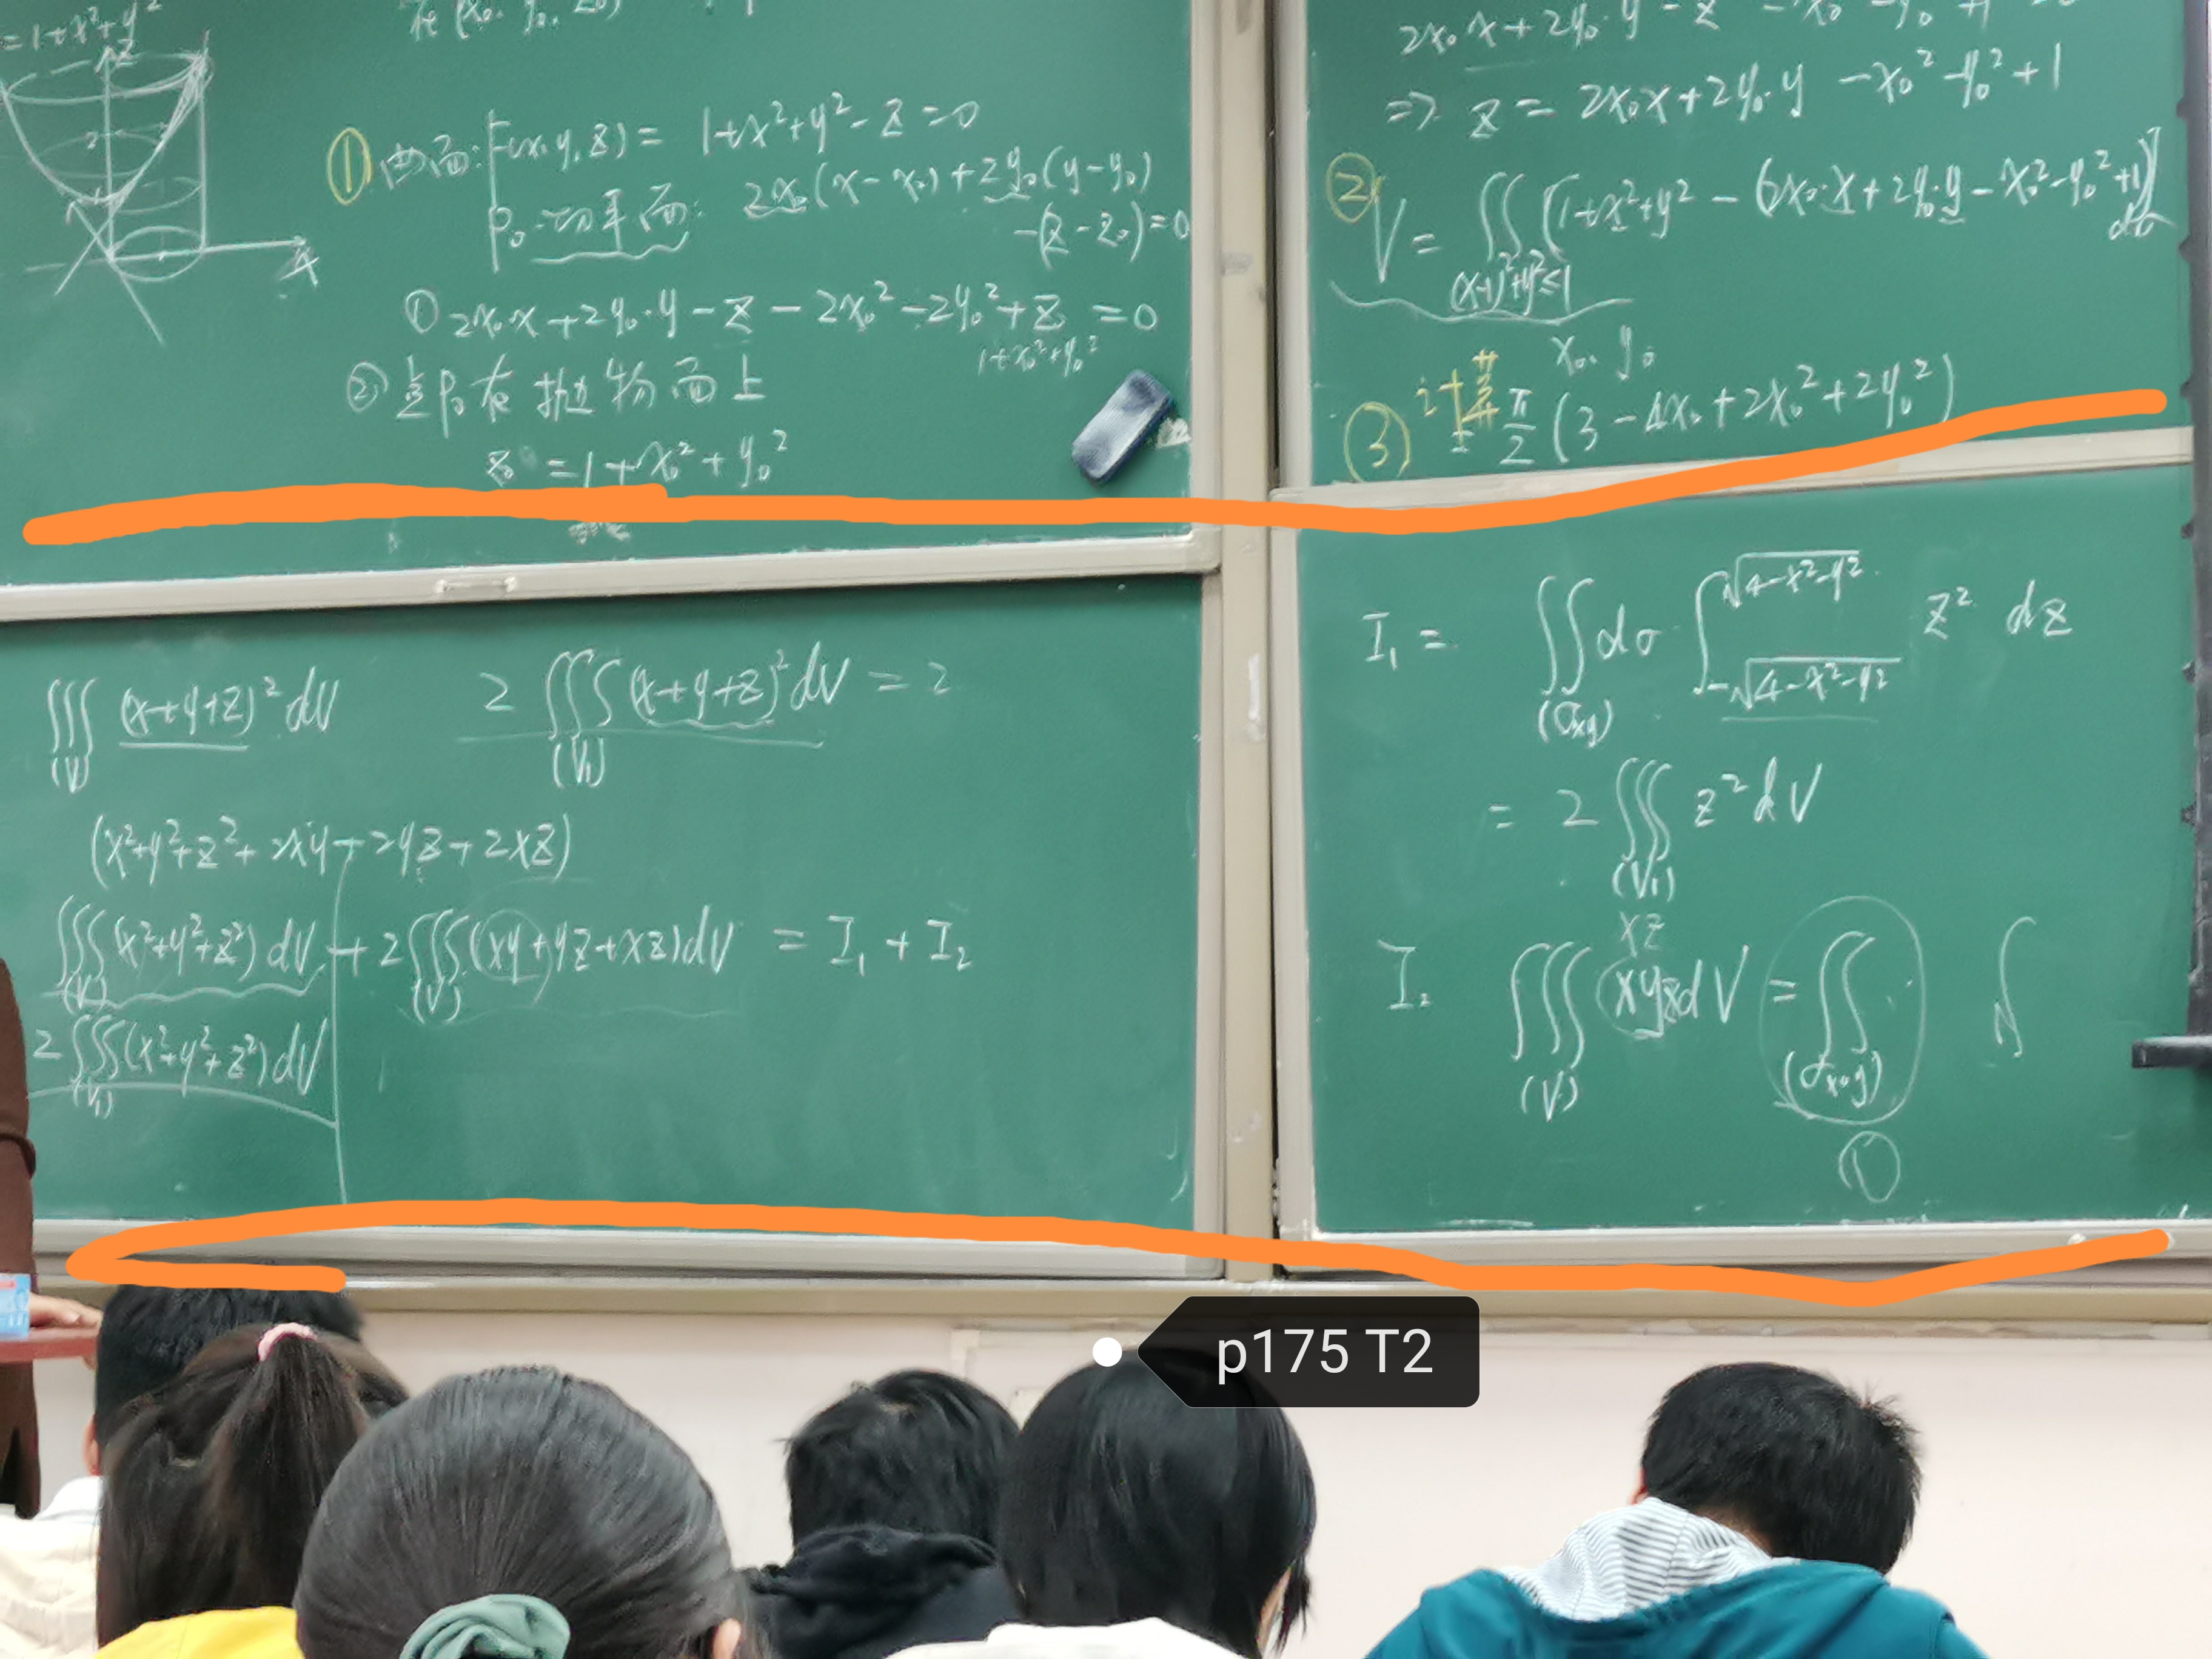 =1+x²+y²
z
2
1
1
x
在(x₀, y₀, z₀)
① 曲面: F(x,y,z) = 1+x²+y²-z=0
P₀ 切平面: 2x₀(x-x₀)+2y₀(y-y₀)
-(z-z₀)=0
① 2x₀·x+2y₀·y-z-2x₀²-2y₀²+z₀=0
1+x₀²+y₀²
② 点P₀在抛物面上
z₀=1+x₀²+y₀²
2x₀·x+2y₀·y-z
⇒ z = 2x₀x+2y₀·y-x₀²-y₀²+1
② V = ∬ [1+x²+y²-(2x₀·x+2y₀·y-x₀²-y₀²+1)]
dσ
(x-1)²+y²≤1
x₀, y₀
③ 计算 = π/2 (3-4x₀+2x₀²+2y₀²)
∭(V) (x+y+z)² dV 2∭(V₁) (x+y+z)² dV = 2
(x²+y²+z²+2xy+2yz+2xz)
∭(V) (x²+y²+z²) dV + 2∭(V) (xy+yz+xz) dV = I₁ + I₂
2∭(V₁) (x²+y²+z²) dV
I₁ = ∬(σxy) dσ ∫_{-√(4-x²-y²)}^{√(4-x²-y²)} z² dz
= 2∭(V₁) z² dV
xz
I₂ ∭(V) xyz dV = ∬(σxoy) ∫
①
p175 T2